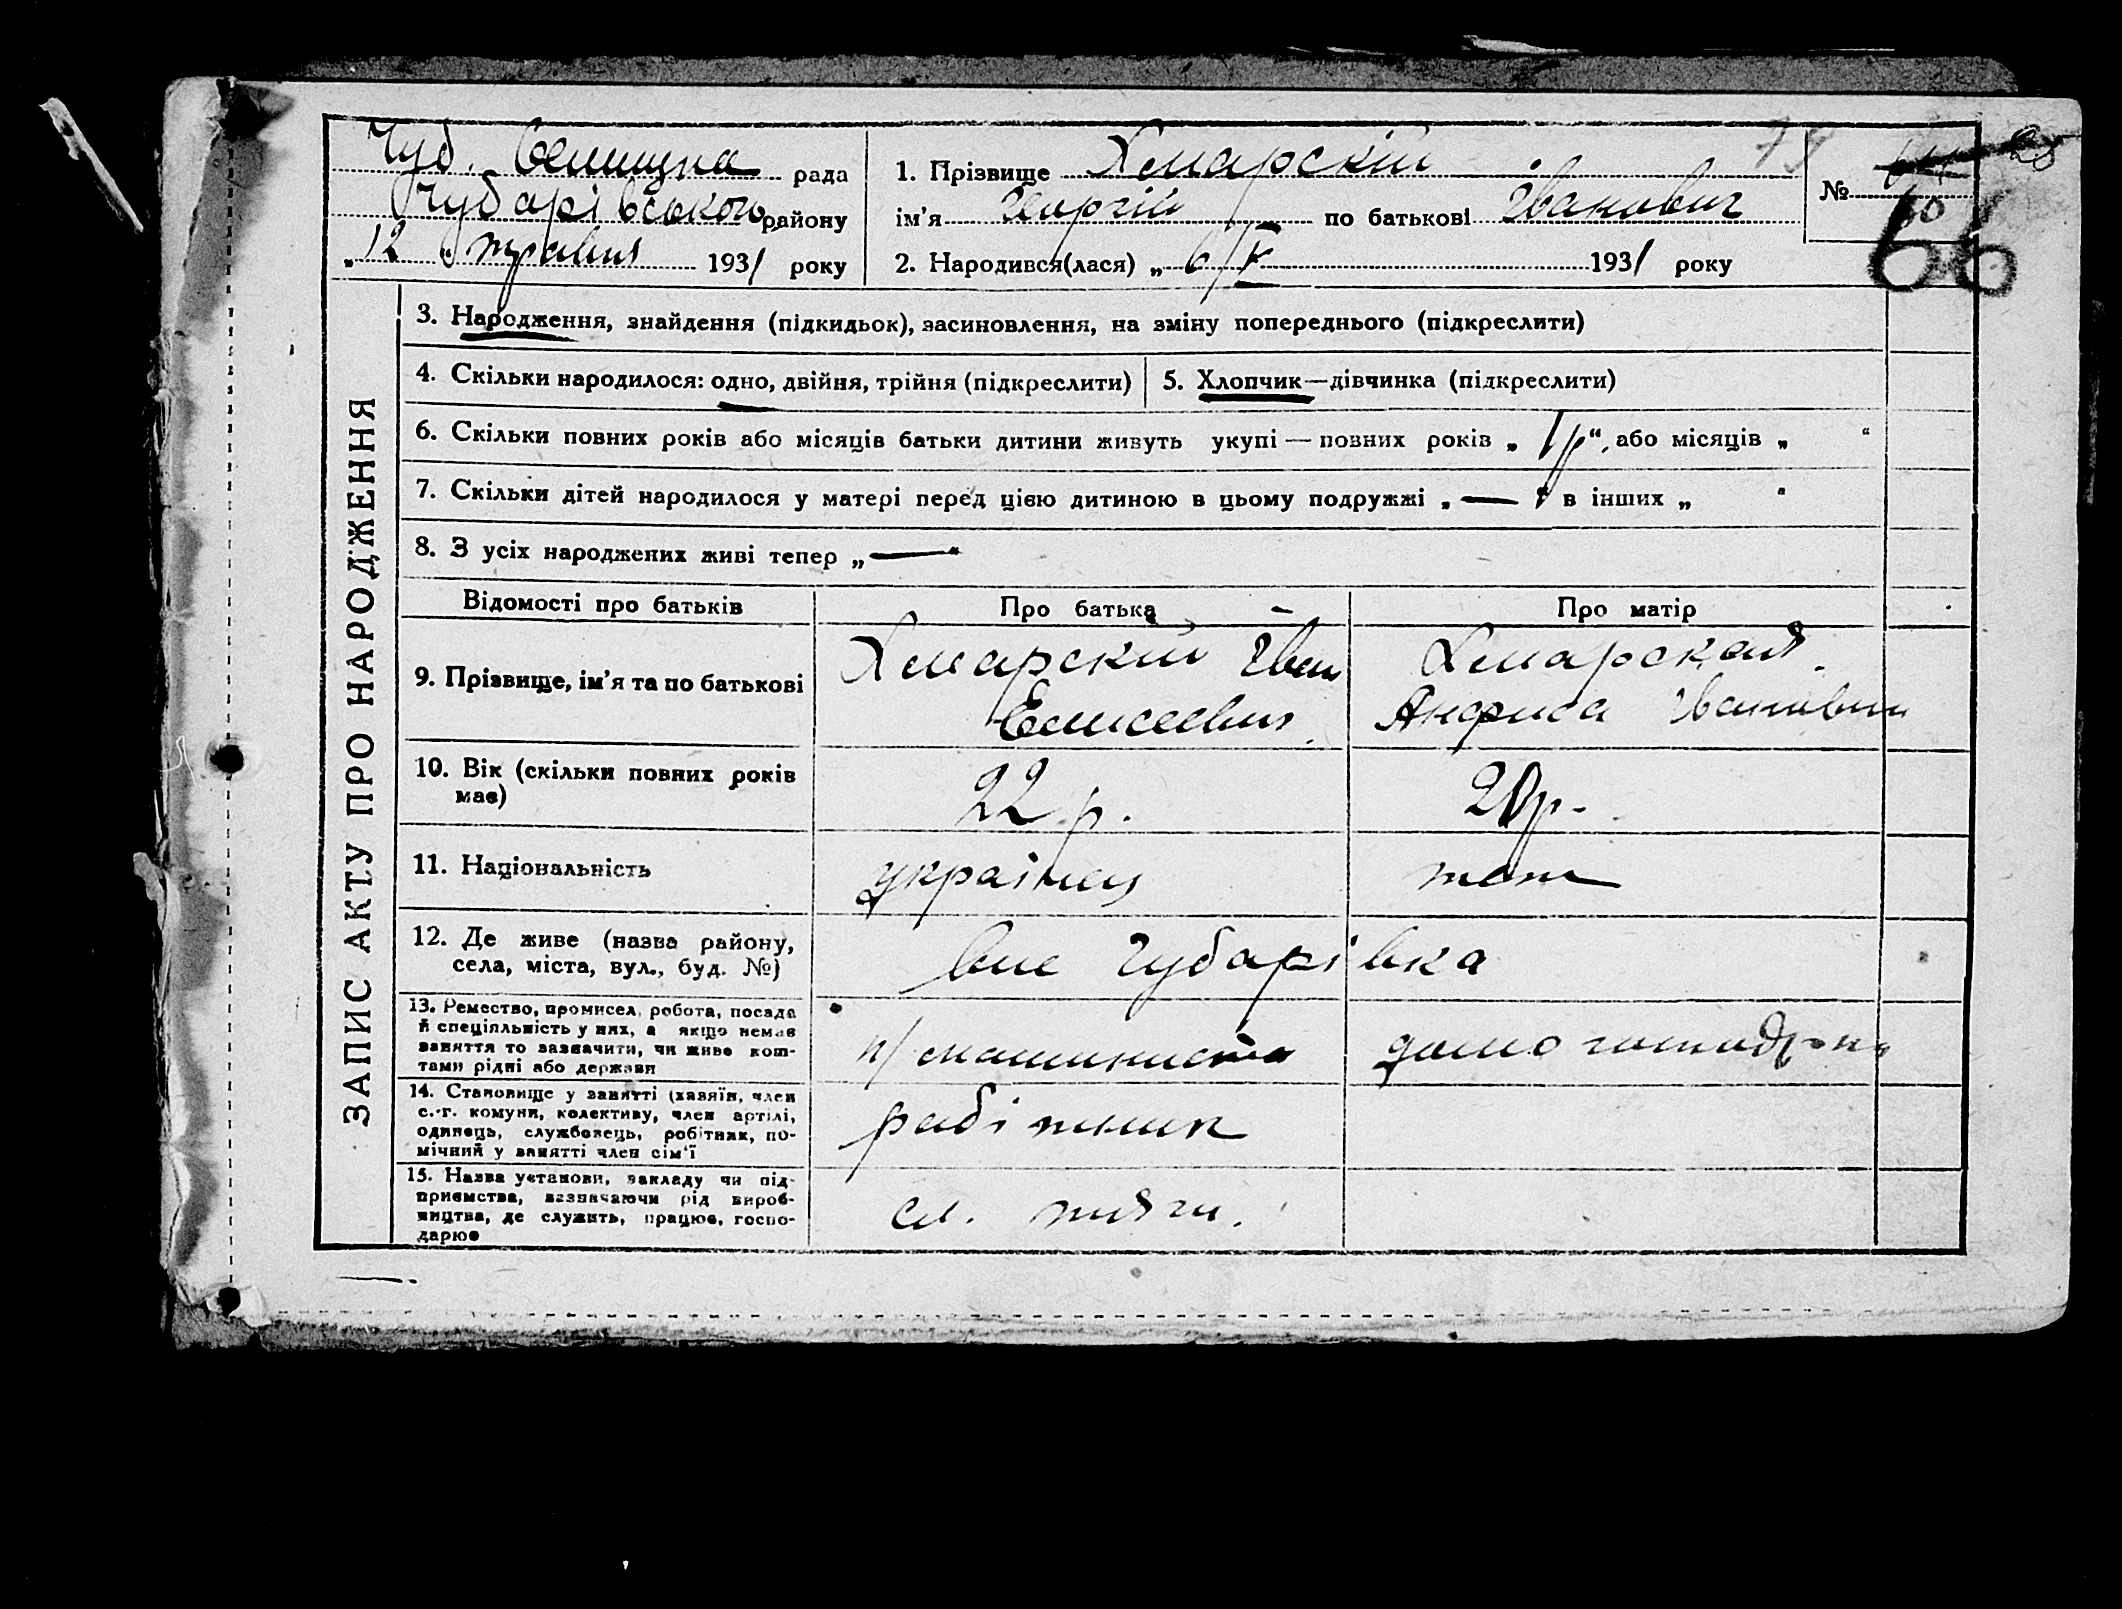 Чуб. Селищна рада
Чубарівського району
„12 " травня 1931 року
1. Прізвище Хмарскій
ім'я Георгій по батькові Іванович
2. Народився(лася) „ 6/V 1931 року
№ 60
66
ЗАПИС АКТУ ПРО НАРОДЖЕННЯ
3. Народження, знайдення (підкидьок), засиновлення, на зміну попереднього (підкреслити)
4. Скільки народилося: одно, двійня, трійня (підкреслити)
5. Хлопчик—дівчинка (підкреслити)
6. Скільки повних років або місяців батьки дитини живуть укупі — повних років „ 1р“, або місяців „ “
7. Скільки дітей народилося у матері перед цією дитиною в цьому подружжі „ — “ в інших „ “
8. З усіх народжених живі тепер „ — “
Відомості про батьків Про батька Про матір
9. Прізвище, ім'я та по батькові
Хмарский Іван
Елисеевич
Хмарская
Анфиса
10. Вік (скільки повних років
має)
22 р.
20р.
11. Національність українец тож
12. Де живе (назва району,
села, міста, вул., буд. №)
Чубарівка
13. Ремество, промисел, робота, посада
й спеціяльність у них, а якщо немає
заняття то зазначити, чи живе кош-
тами рідні або держави
п/машиниста
14. Становище у занятті (хазяїн, член
с.-г. комуни, колективу, член артілі,
одинець, службовець, робітник, по-
мічний у занятті член сім'ї
рабітник
15. Назва установи, закладу чи під-
приємства, зазначаючи рід вироб-
ництва, де служить, працює, госпо-
дарює
сл. тяги.